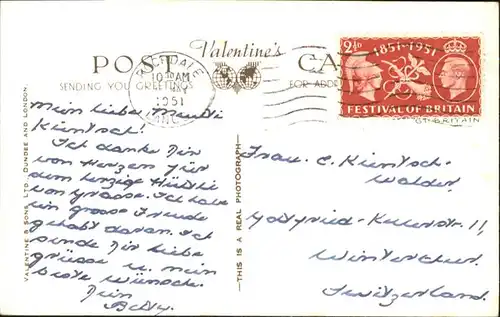 POST CARD
Valentine's
SENDING YOU GREETINGS
FOR ADDRESS
ROCHDALE
10:30 AM
1951
LANCS
2½D
1851-1951
FESTIVAL OF BRITAIN
GT. BRITAIN
VALENTINE & SONS, LTD. DUNDEE AND LONDON.
THIS IS A REAL PHOTOGRAPH
Mein liebe
Ich danke Dir
von Herzen für
dem herzige Hüetli
von Grosse. Ich habe
ein grosse Freude
gehabt daran. Ich
sende Dir liebe
grüsse u. mein
beste wünsche.
Dein
Betty.
Frau. C. Kientsch-
Walder,
Gottfried-Kellerstr. 11,
Winterthur,
Switzerland.